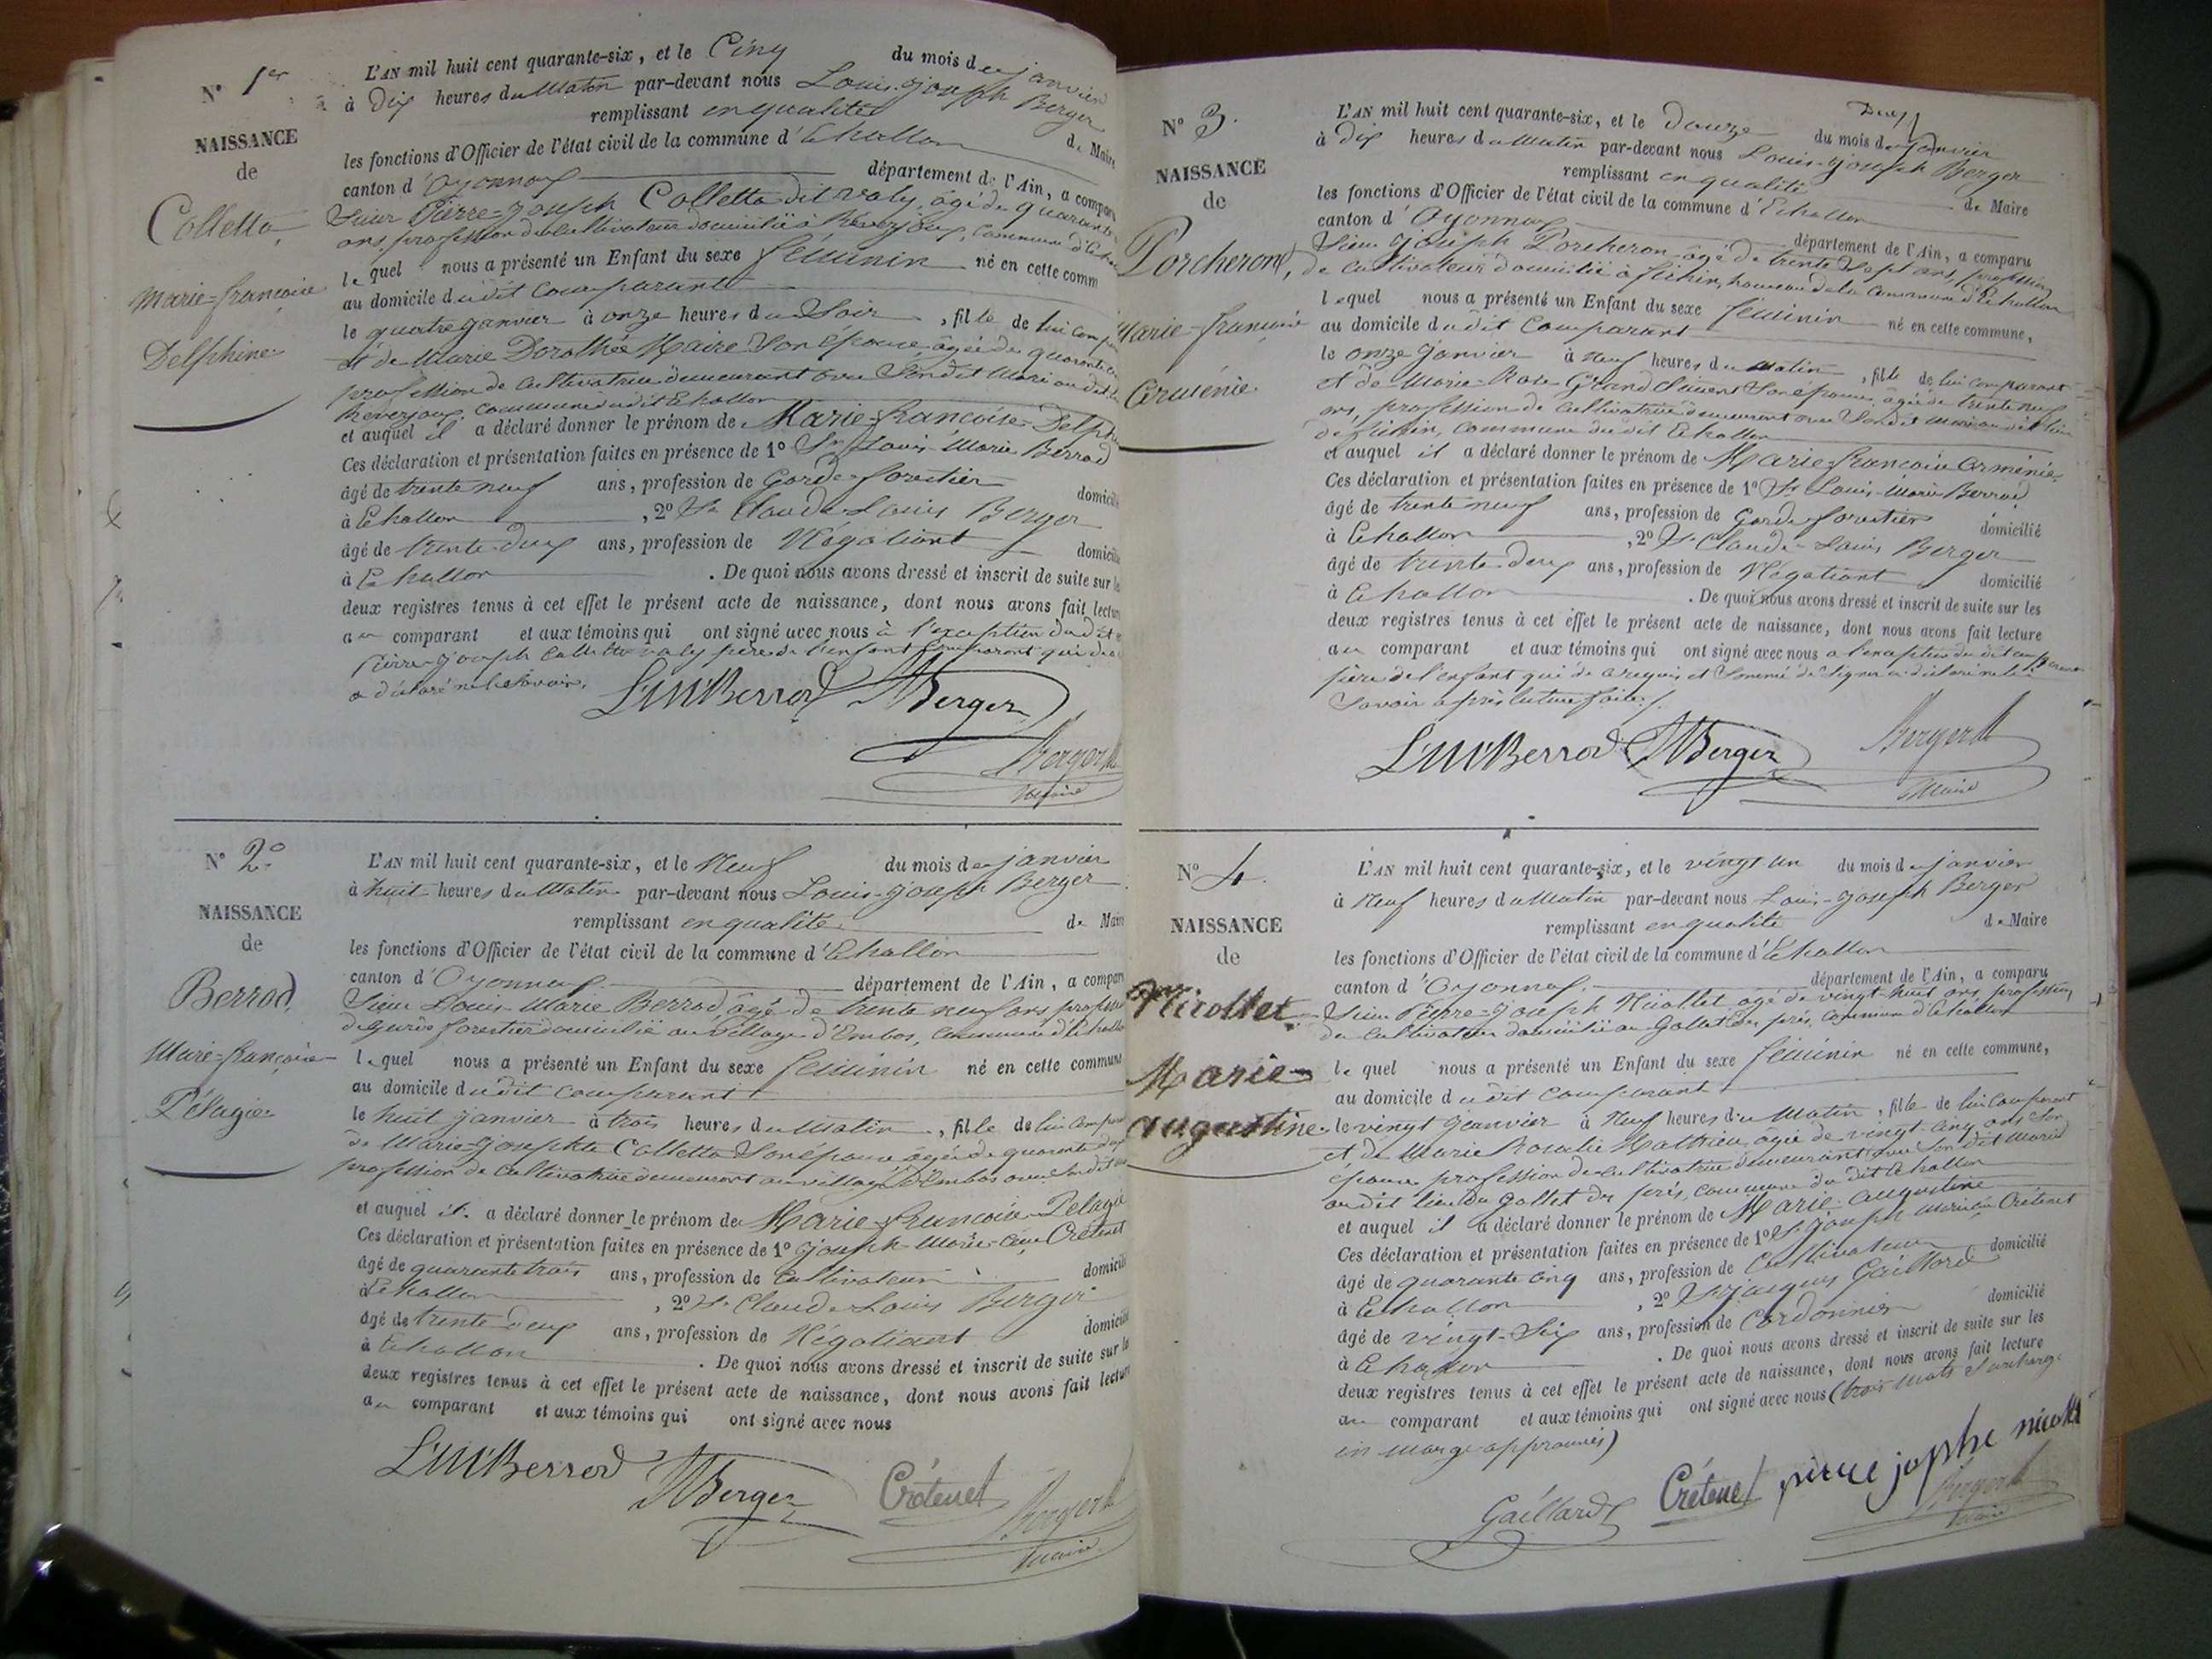 N° 1er
NAISSANCE
de
Colletta
Marie-françoise
Delphine
L'AN mil huit cent quarante-six, et le Cinq du mois de janvier
à Dix heures du Matin par-devant nous Louis-Joseph Berger
remplissant en qualité de Maire
les fonctions d'Officier de l'état civil de la commune d'Echallon
canton d'Oyonnax département de l'Ain, a comparu
Sieur Pierre-Joseph Colletta dit valy, âgé de quarante
ans, profession de Cultivateur domicilié à commune d'Echallon
lequel nous a présenté un Enfant du sexe féminin né en cette comm
au domicile dudit comparant
le quatre janvier à onze heures du Soir, fille de lui comparant
et de Marie Dorothée Maire Son épouse, âgée de quarante
profession de Cultivatrice demeurant avec Sondit Mari audit
commune dudit Echallon
et auquel il a déclaré donner le prénom de Marie-françoise-Delph
Ces déclaration et présentation faites en présence de 1° Sr Louis-Marie Berrod
âgé de trente neuf ans, profession de Garde-forestier domicilié
à Echallon, 2° Sr Claude-Louis Berger
âgé de trente-deux ans, profession de Négotiant domicilié
à Echallon. De quoi nous avons dressé et inscrit de suite sur les
deux registres tenus à cet effet le présent acte de naissance, dont nous avons fait lecture
au comparant et aux témoins qui ont signé avec nous à l'exception dudit
Pierre-Joseph Colletta valy père de l'enfant comparant qui
a déclaré ne le savoir.
LMBerrod Berger
Berger
Maire
N° 2e
NAISSANCE
de
Berrod
Marie-françoise
Pélagie
L'AN mil huit cent quarante-six, et le Neuf du mois de janvier
à huit heures du Matin par-devant nous Louis-Joseph Berger
remplissant en qualité de Maire
les fonctions d'Officier de l'état civil de la commune d'Echallon
canton d'Oyonnax département de l'Ain, a comparu
Sieur Louis-Marie Berrod, âgé de trente neuf ans profession
de garde forestier domicilié au village d'Embos, commune d'Echallon
lequel nous a présenté un Enfant du sexe féminin né en cette commune
au domicile dudit comparant
le huit janvier à trois heures du Matin, fille de lui comparant
de Marie-Josephte Colletta Son épouse âgée de quarante deux
profession de cultivatrice demeurant au village d'Embos avec Sondit
et auquel il a déclaré donner le prénom de Marie-françoise-Pélagie
Ces déclaration et présentation faites en présence de 1° Joseph-Marie Crétenet
âgé de quarante trois ans, profession de Cultivateur domicilié
à Echallon, 2° Sr Claude-Louis Berger
âgé de trente-deux ans, profession de Négotiant domicilié
à Echallon. De quoi nous avons dressé et inscrit de suite sur les
deux registres tenus à cet effet le présent acte de naissance, dont nous avons fait lecture
au comparant et aux témoins qui ont signé avec nous
LMBerrod Berger Crétenet Berger
Maire
N° 3.
NAISSANCE
de
Porcheron,
Marie-françoise
Arménie
L'AN mil huit cent quarante-six, et le Douze du mois de janvier
à Dix heures du Matin par-devant nous Louis-Joseph Berger
remplissant en qualité de Maire
les fonctions d'Officier de l'état civil de la commune d'Echallon
canton d'Oyonnax département de l'Ain, a comparu
Sieur Joseph Porcheron âgé de trente Sept ans, profession
de Cultivateur domicilié à hameau de la commune d'Echallon
lequel nous a présenté un Enfant du sexe féminin né en cette commune,
au domicile dudit comparant
le onze janvier à Neuf heures du Matin, fille de lui comparant
et de Marie-Rose Grandclément Son épouse, âgée de trente neuf
ans, profession de Cultivatrice demeurant avec Sondit Mari audit lieu
commune dudit Echallon
et auquel il a déclaré donner le prénom de Marie-francoise Arménie
Ces déclaration et présentation faites en présence de 1° Sr Louis-Marie Berrod
âgé de trente neuf ans, profession de Garde-forestier domicilié
à Echallon, 2° Sr Claude-Louis Berger
âgé de trente-deux ans, profession de Négotiant domicilié
à Echallon. De quoi nous avons dressé et inscrit de suite sur les
deux registres tenus à cet effet le présent acte de naissance, dont nous avons fait lecture
au comparant et aux témoins qui ont signé avec nous à l'exception du dit comparant
père de l'enfant qui de ce requis et Sommé de Signer a déclaré ne le
Savoir après lecture faite.
LMBerrod Berger Berger
Maire
N° 4.
NAISSANCE
de
Nicollet
Marie
augustine
L'AN mil huit cent quarante-six, et le vingt un du mois de janvier
à Neuf heures du Matin par-devant nous Louis-Joseph Berger
remplissant en qualité de Maire
les fonctions d'Officier de l'état civil de la commune d'Echallon
canton d'Oyonnax département de l'Ain, a comparu
Sieur Pierre-Joseph Nicollet âgé de vingt-huit ans, profession
de cultivateur domicilié au Gollet du prés, commune d'Echallon
lequel nous a présenté un Enfant du sexe féminin né en cette commune,
au domicile dudit comparant
le vingt janvier à Neuf heures du Matin, fille de lui comparant
et de Marie Rosalie Mathieu, âgée de vingt-cinq ans Son
épouse profession de cultivatrice demeurant avec Son dit Mari
audit lieu du Gollet du prés, commune dudit Echallon
et auquel il a déclaré donner le prénom de Marie-Augustine
Ces déclaration et présentation faites en présence de 1° Sr Joseph Marie Crétenet
âgé de quarante cinq ans, profession de Cultivateur domicilié
à Echallon, 2° Sr Jacques Gaillard
âgé de vingt-Six ans, profession de Cordonnier domicilié
à Echallon. De quoi nous avons dressé et inscrit de suite sur les
deux registres tenus à cet effet le présent acte de naissance, dont nous avons fait lecture
au comparant et aux témoins qui ont signé avec nous (trois mots Surchargé
en marge approuvés)
Gaillard Crétenet pierre josphe nicollet
Berger
Maire